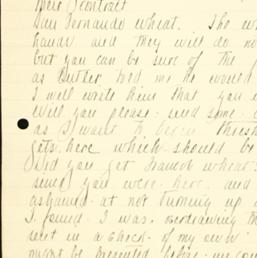 their contract
San Fernando wheat. She w
hands and they will do no
but you can be sure of the
as Butler told me he would
I will write him that you
Will you please send some
as I want to begin thresh
gets here which should be
Did you get Franco wheat
since you were here and
ashamed at not turning up
I found I was overdrawing th
sent in a check of my own
might be presented before